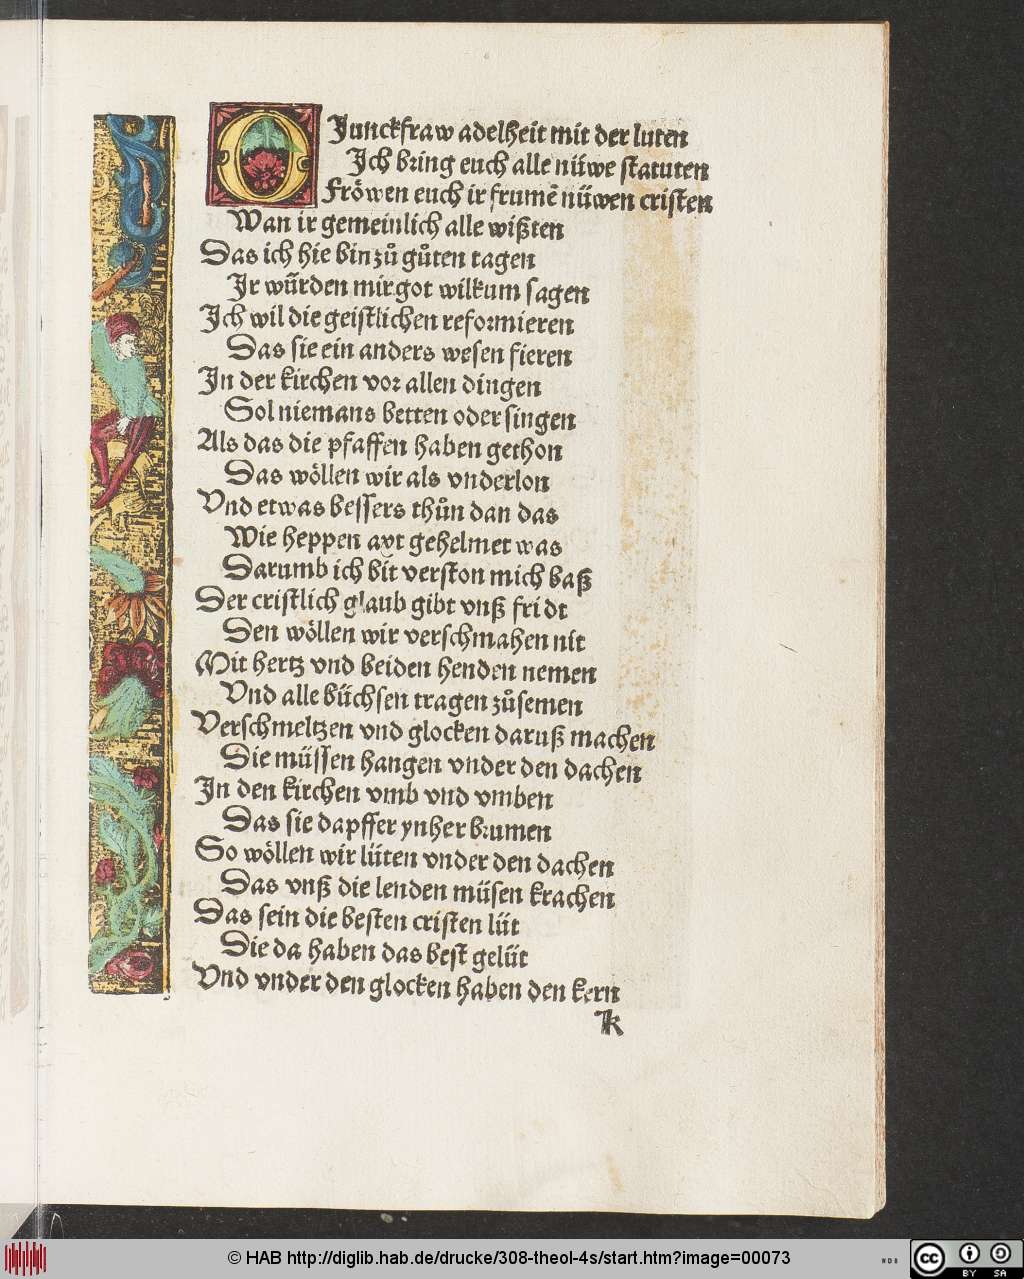 O Junckfraw adelheit mit der luten
Ich bring euch alle nüwe statuten
Fröwen euch ir frumē nüwen cristen
Wan ir gemeinlich alle wißten
Das ich hie bin zů gůten tagen
Ir würden mir got wilkum sagen
Ich wil die geistlichen reformieren
Das sie ein anders wesen fieren
In der kirchen vor allen dingen
Sol niemans betten oder singen
Als das die pfaffen haben gethon
Das wöllen wir als vnderlon
Vnd etwas bessers thůn dan das
Wie heppen ayt gehelmet was
Darumb ich bit verston mich baß
Der cristlich glaub gibt vnß fridt
Den wöllen wir verschmahen nit
Mit hertz vnd beiden henden nemen
Vnd alle büchsen tragen zůsemen
Verschmeltzen vnd glocken daruß machen
Die müssen hangen vnder den dachen
In den kirchen vmb vnd vmben
Das sie dapffer ynher brumen
So wöllen wir lüten vnder den dachen
Das vnß die lenden müsen krachen
Das sein die besten cristen lüt
Die da haben das best gelüt
Vnd vnder den glocken haben den kern
k
© HAB http://diglib.hab.de/drucke/308-theol-4s/start.htm?image=00073
WDB
cc BY SA